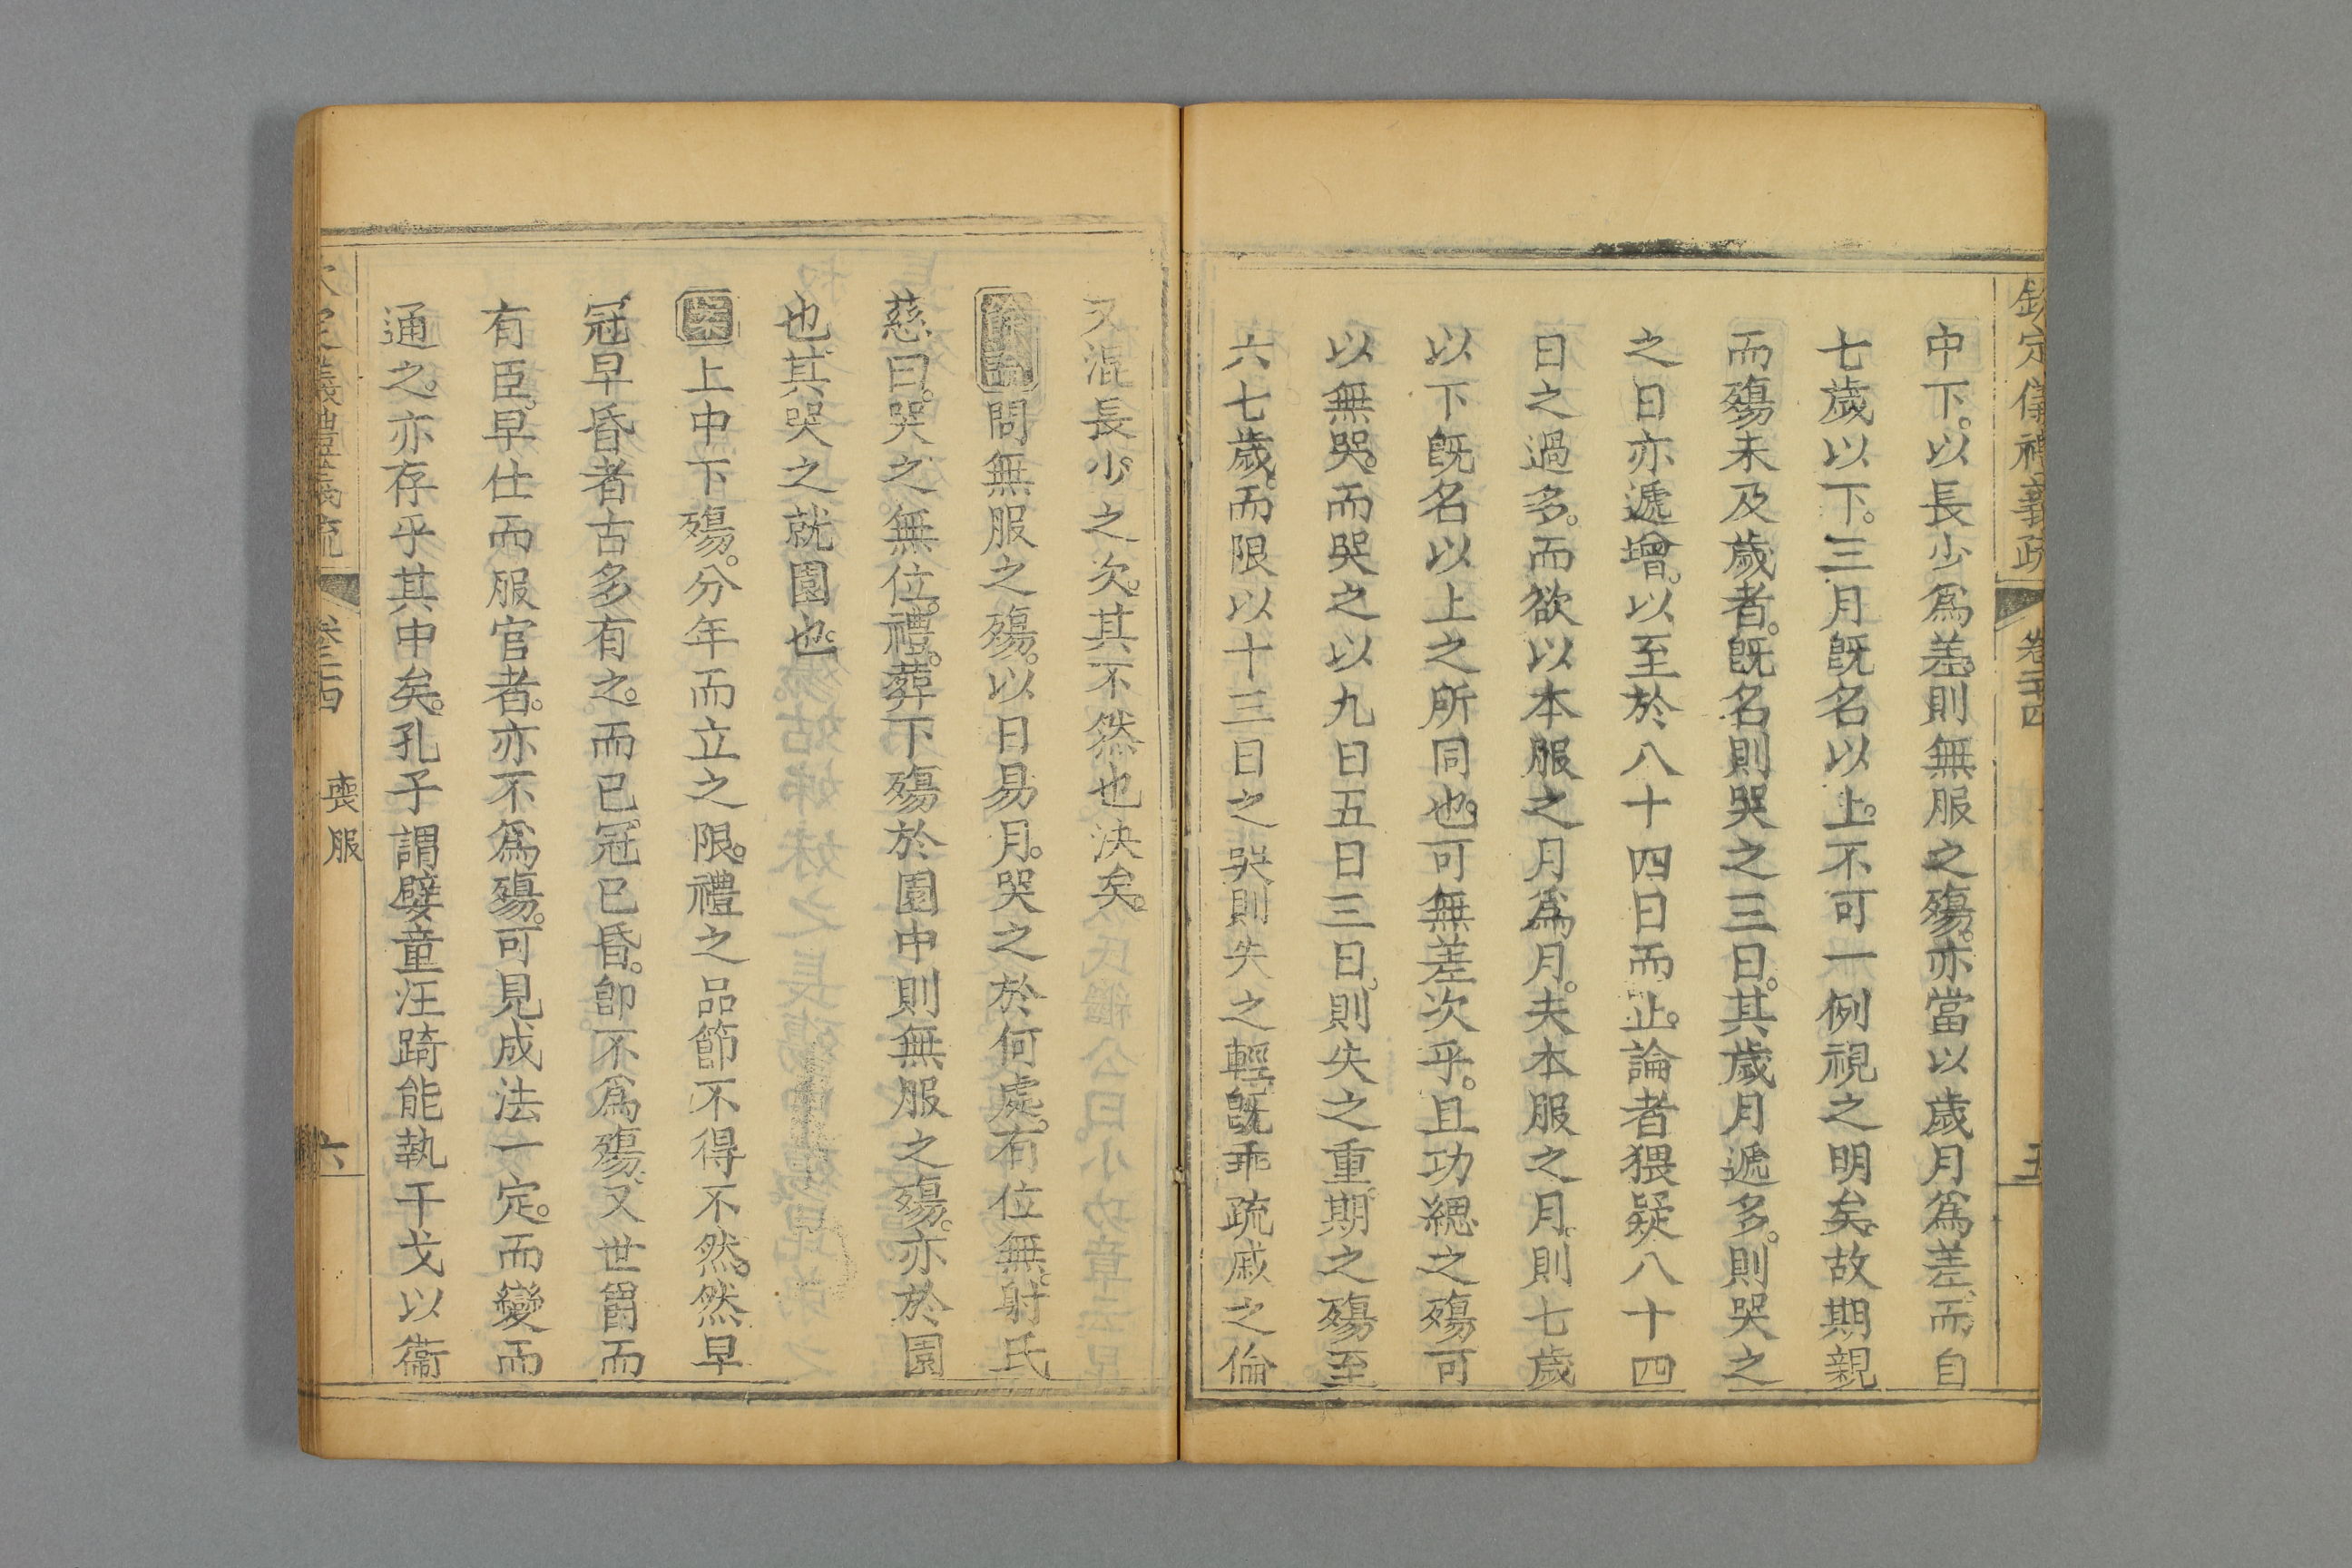 欽定儀禮義疏 卷二十四 五
中下。以長少爲差。則無服之殤。亦當以歲月爲差。而自
七歲以下。三月旣名以上。不可一例視之明矣。故期親
而殤未及歲者。旣名則哭之三日。其歲月遞多。則哭之
之日亦遞增。以至於八十四日而止。論者猥疑八十四
日之過多。而欲以本服之月爲月。夫本服之月。則七歲
以下旣名以上之所同也。可無差次乎。且功緦之殤可
以無哭。而哭之以九日五日三日。則失之重。期之殤至
六七歲。而限以十三日之哭則失之輕。旣乖疏戚之倫
又混長少之次。其不然也決矣。
餘論問無服之殤。以日易月。哭之於何處。有位無。射氏
慈曰。哭之無位。禮。葬下殤於園中則無服之殤。亦於園
也。其哭之就園也。
案上中下殤。分年而立之限。禮之品節不得不然。然早
冠早昏者古多有之。而已冠已昏。卽不爲殤。又世爵而
有臣。早仕而服官者。亦不爲殤。可見成法一定。而變而
通之。亦存乎其中矣。孔子謂嬖童汪踦能執干戈以衞
欽定儀禮義疏 卷二十四 喪服 六